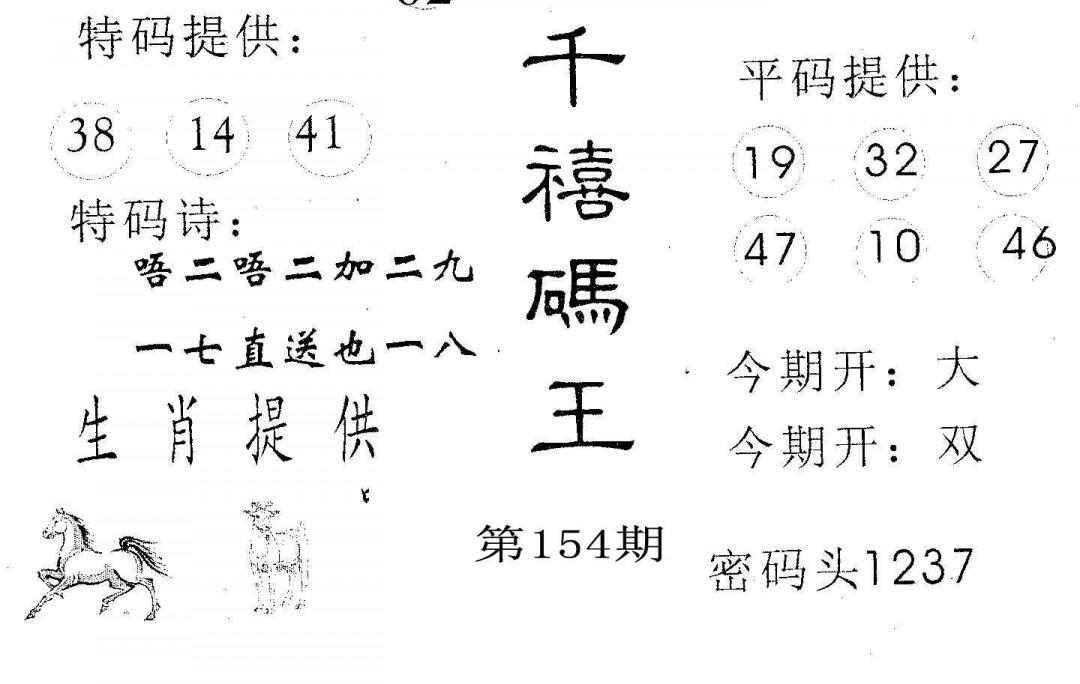 特码提供：
38 14 41
特码诗：
唔二唔二加二九
一七直送也一八
生肖提供
千禧碼王
第154期
平码提供：
19 32 27
47 10 46
今期开：大
今期开：双
密码头1237